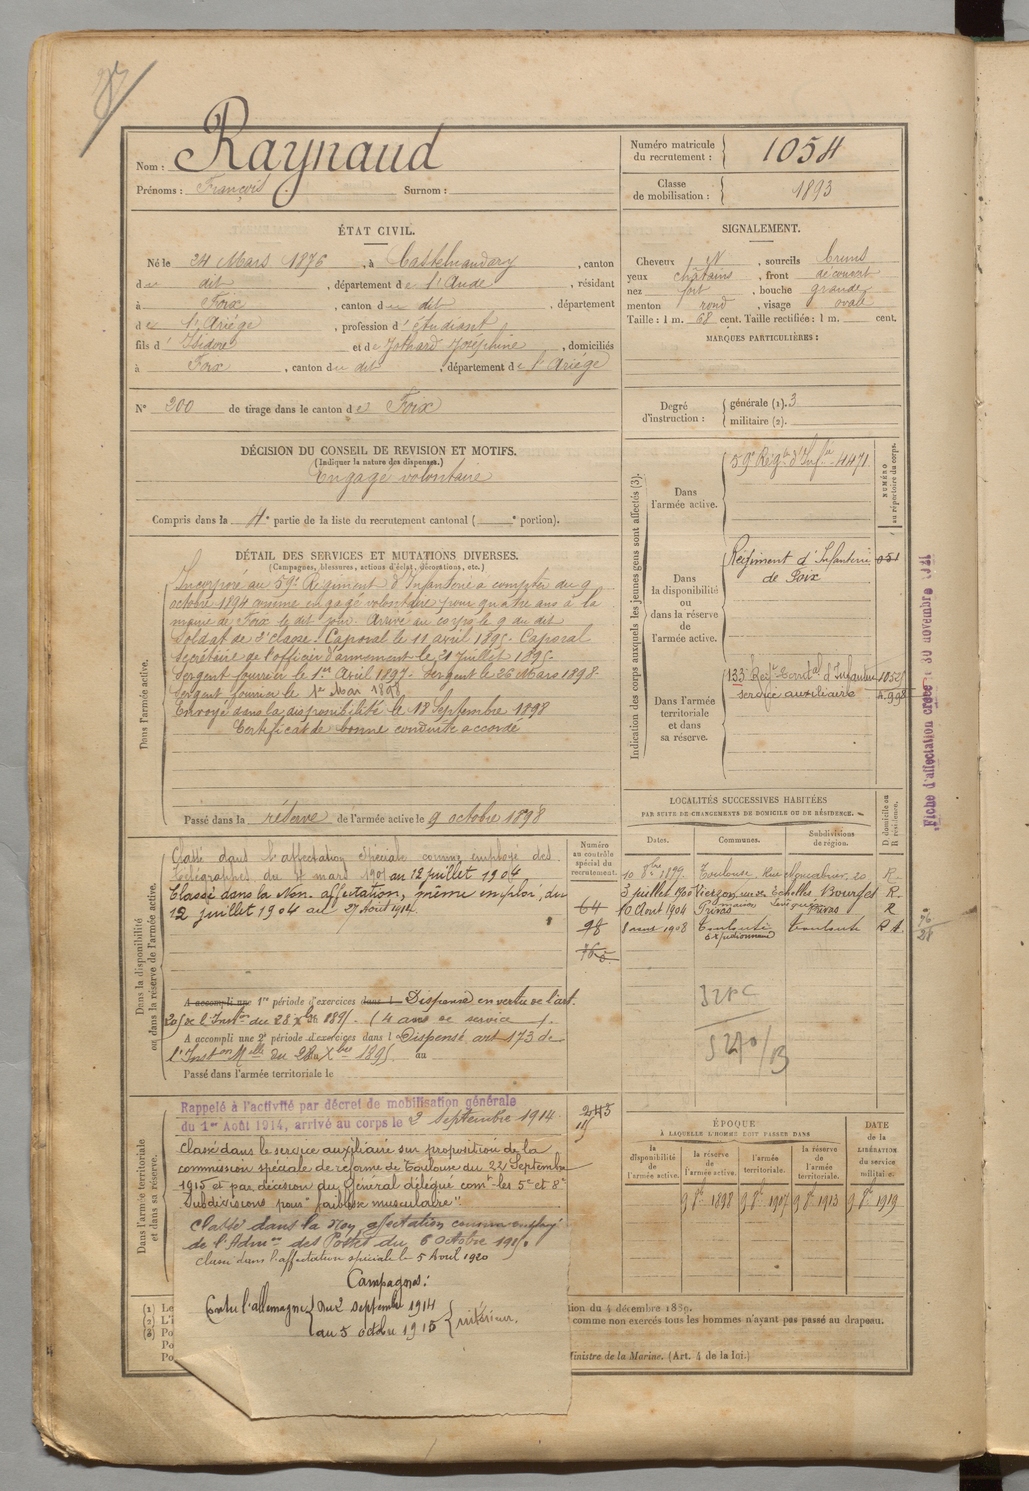 Nom : Raynaud
Prénoms : François Surnom :
Numéro matricule du recrutement : 1054
Classe de mobilisation : 1893
ÉTAT CIVIL.
Né le 24 Mars 1876, à Castelnaudary, canton
du dit, département de l'Aude, résidant
à Foix, canton du dit, département
de l'Ariége, profession d'étudiant
fils d'Isidore et de Jothard Joséphine, domiciliés
à Foix, canton du dit, département de l'Ariége
N° 200 de tirage dans le canton de Foix
SIGNALEMENT.
Cheveux N, sourcils bruns
yeux châtains, front découvert
nez fort, bouche grande
menton rond, visage ovale
Taille : 1 m. 68 cent. Taille rectifiée : 1 m. cent.
MARQUES PARTICULIÈRES :
Degré d'instruction : générale (1). 3
militaire (2).
DÉCISION DU CONSEIL DE REVISION ET MOTIFS.
(Indiquer la nature des dispenses.)
Engagé volontaire
Compris dans la 4e partie de la liste du recrutement cantonal ( e portion).
DÉTAIL DES SERVICES ET MUTATIONS DIVERSES.
(Campagnes, blessures, actions d'éclat, décorations, etc.)
Dans l'armée active.
Incorporé au 59e Régiment d'Infanterie à compter du 9
octobre 1894 comme engagé volontaire pour quatre ans à la
mairie de Foix le dit jour. Arrivé au corps le 9 du dit
Soldat de 2e classe. Caporal le 11 avril 1895. Caporal
Secrétaire de l'officier d'armement le 21 Juillet 1895.
Sergent fourrier le 1er Avril 1897. Sergent le 26 Mars 1898.
Sergent fourrier le 1er Mai 1898
Envoyé dans la disponibilité le 18 Septembre 1898
Certificat de bonne conduite accordé
Passé dans la réserve de l'armée active le 9 octobre 1898
Indication des corps auxquels les jeunes gens sont affectés (3).
NUMÉRO au répertoire du corps.
Dans l'armée active.
59e Régt d'Infie 4471
Dans la disponibilité ou dans la réserve de l'armée active.
Régiment d'Infanterie 051
de Foix
Dans l'armée territoriale et dans sa réserve.
133 Regt Territal d'Infanterie
service auxiliaire
Fiche d'affectation créée : 30 novembre
LOCALITÉS SUCCESSIVES HABITÉES
PAR SUITE DE CHANGEMENTS DE DOMICILE OU DE RÉSIDENCE.
D domicile ou R résidence.
Dates. Communes. Subdivisions de région.
10 8bre 1899. Toulouse. Rue 20 R.
3 juillet 1900 Vierzon Bourges R.
10 Aout 1904 Privas Privas R
1908 Toulouse Toulouse
Numéro au contrôle spécial du recrutement.
64
98
Dans la disponibilité ou dans la réserve de l'armée active.
Classé dans l'affectation spéciale comme employé des
télégraphes du mars 1901 au 12 juillet 1904
Classé dans la Non. affectation, même emploi, du
12 juillet 1904 au 27 Août 1914
A accompli une 1re période d'exercices dans l Dispensé en vertu de l'art.
205 de l'Inston du 28 Xbre 1895. (4 ans de service).
A accompli une 2e période d'exercices dans l Dispensé art 173 de
l'Inston Mlle du 28 Xbre 1895 au
Passé dans l'armée territoriale le
Dans l'armée territoriale et dans sa réserve.
Rappelé à l'activité par décret de mobilisation générale
du 1er Août 1914, arrivé au corps le 2 septembre 1914.
Classé dans le service auxiliaire sur proposition de la
commission spéciale de réforme de Toulouse du 22 Septembre
1915 et par décision du Général délégué comt les 5e et 8e
Subdivisions pour "faiblesse musculaire"
Classé dans la Non affectation comme employé
de l'Admon des Postes du 6 Octobre 1915.
Classé dans l'affectation spéciale le 5 Avril 1920
Campagnes :
Contre l'allemagne du 2 septembre 1914
au 5 octobre 1915 intérieur.
ÉPOQUE
À LAQUELLE L'HOMME DOIT PASSER DANS
la disponibilité de l'armée active.
la réserve de l'armée active.
l'armée territoriale.
la réserve de l'armée territoriale.
DATE de la LIBÉRATION du service militaire.
9 8bre 1898 9 8bre 1907 9 8bre 1913 9 8bre 1919
(1) Le
(2) L'i
(3) Po
Po
Po
tion du 4 décembre 1889.
comme non exercés tous les hommes n'ayant pas passé au drapeau.
Ministre de la Marine. (Art. 4 de la loi.)